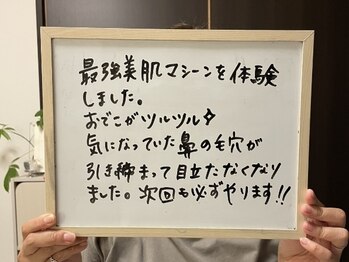 最強美肌マシーンを体験
しました。
おでこがツルツル✧
気になっていた鼻の毛穴が
引き締まって目立たなくなり
ました。次回も必ずやります!!